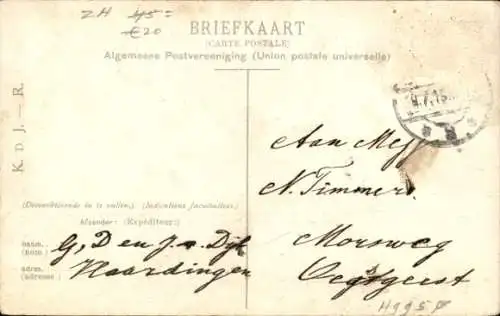 ZH 45=
€20
BRIEFKAART
(CARTE POSTALE)
Algemeene Postvereeniging (Union postale universelle)
K. D. J. — R.
Aan Mej
N. Timmer.
Morsweg
Oegstgeest
(Desverkiezende in te vullen). (Indications facultatives).
Afzender: (Expéditeur):
naam. (nom)
G, D en J. v. Dijk
adres. (adresse)
Vlaardingen
H995